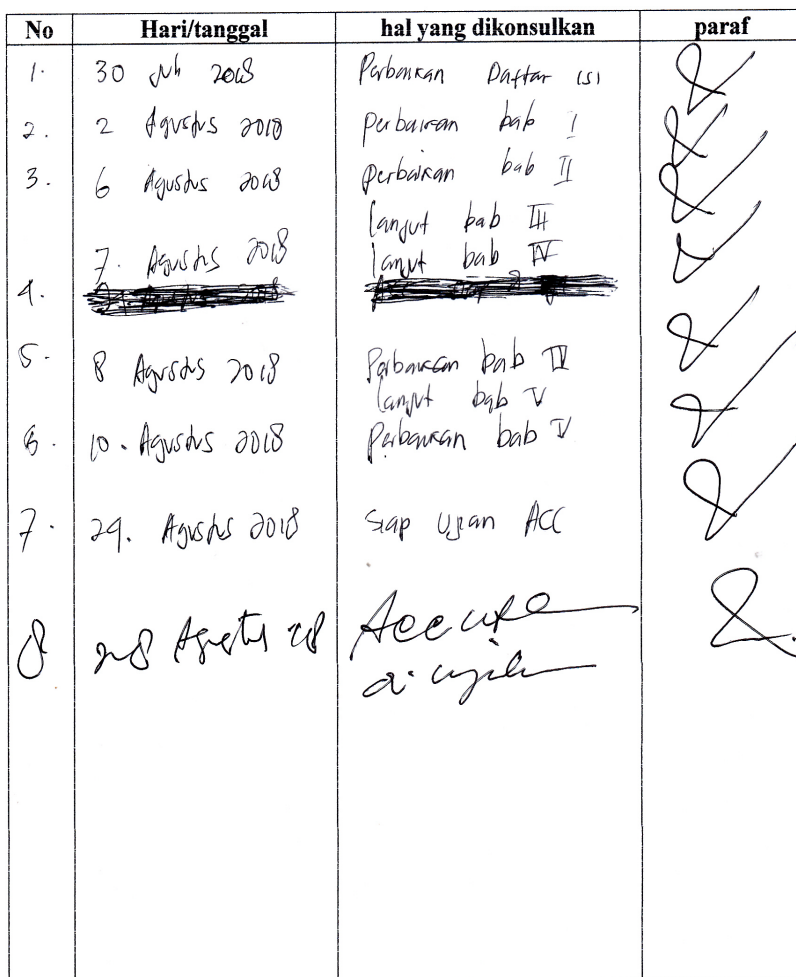 No Hari/tanggal hal yang dikonsulkan paraf
1. 30 Juli 2018 Perbaikan Daftar isi
2. 2 Agustus 2018 Perbaikan bab I
3. 6 Agustus 2018 Perbaikan bab II
lanjut bab III
7. Agustus 2018 lanjut bab IV
4.
5. 8 Agustus 2018 Perbaikan bab IV
lanjut bab V
6. 10. Agustus 2018 Perbaikan bab V
7. 24. Agustus 2018 Siap Ujian ACC
8 28 Agustus 2018 Acc